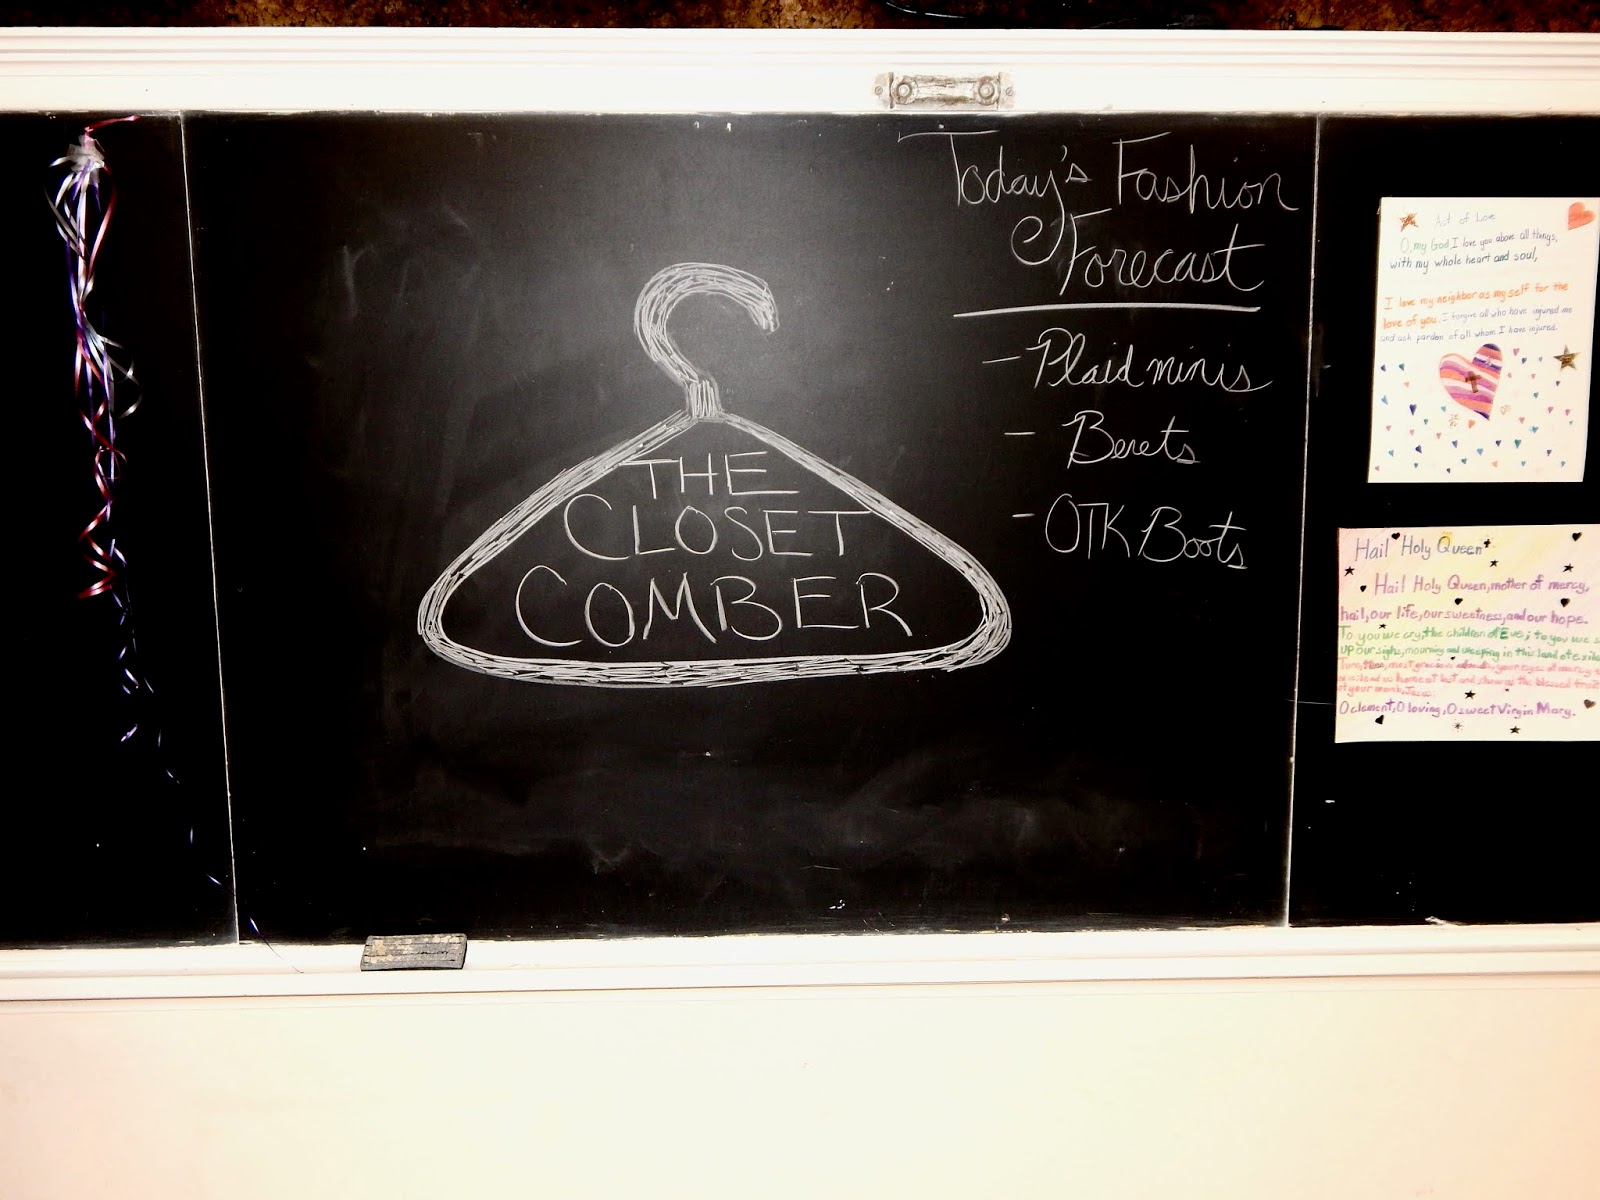 THE
CLOSET
COMBER
Today's Fashion
Forecast
- Plaid minis
- Berets
- OTK Boots
Act of Love
O, my God I love you above all things,
with my whole heart and soul,
I love my neighbor as my self for the
love of you. I forgive all who have injured me
and ask pardon of all whom I have injured.
Hail Holy Queen
Hail Holy Queen, mother of mercy,
hail, our life, our sweetness, and our hope.
To you we cry, the children of Eve; to you we s
up our sighs, mourning and weeping in this land of exile
Turn, then, most gracious advocate, your eyes of mercy
lead us home at last and show us the blessed fruit
of your womb, Jesus:
O clement, O loving, O sweet Virgin Mary.